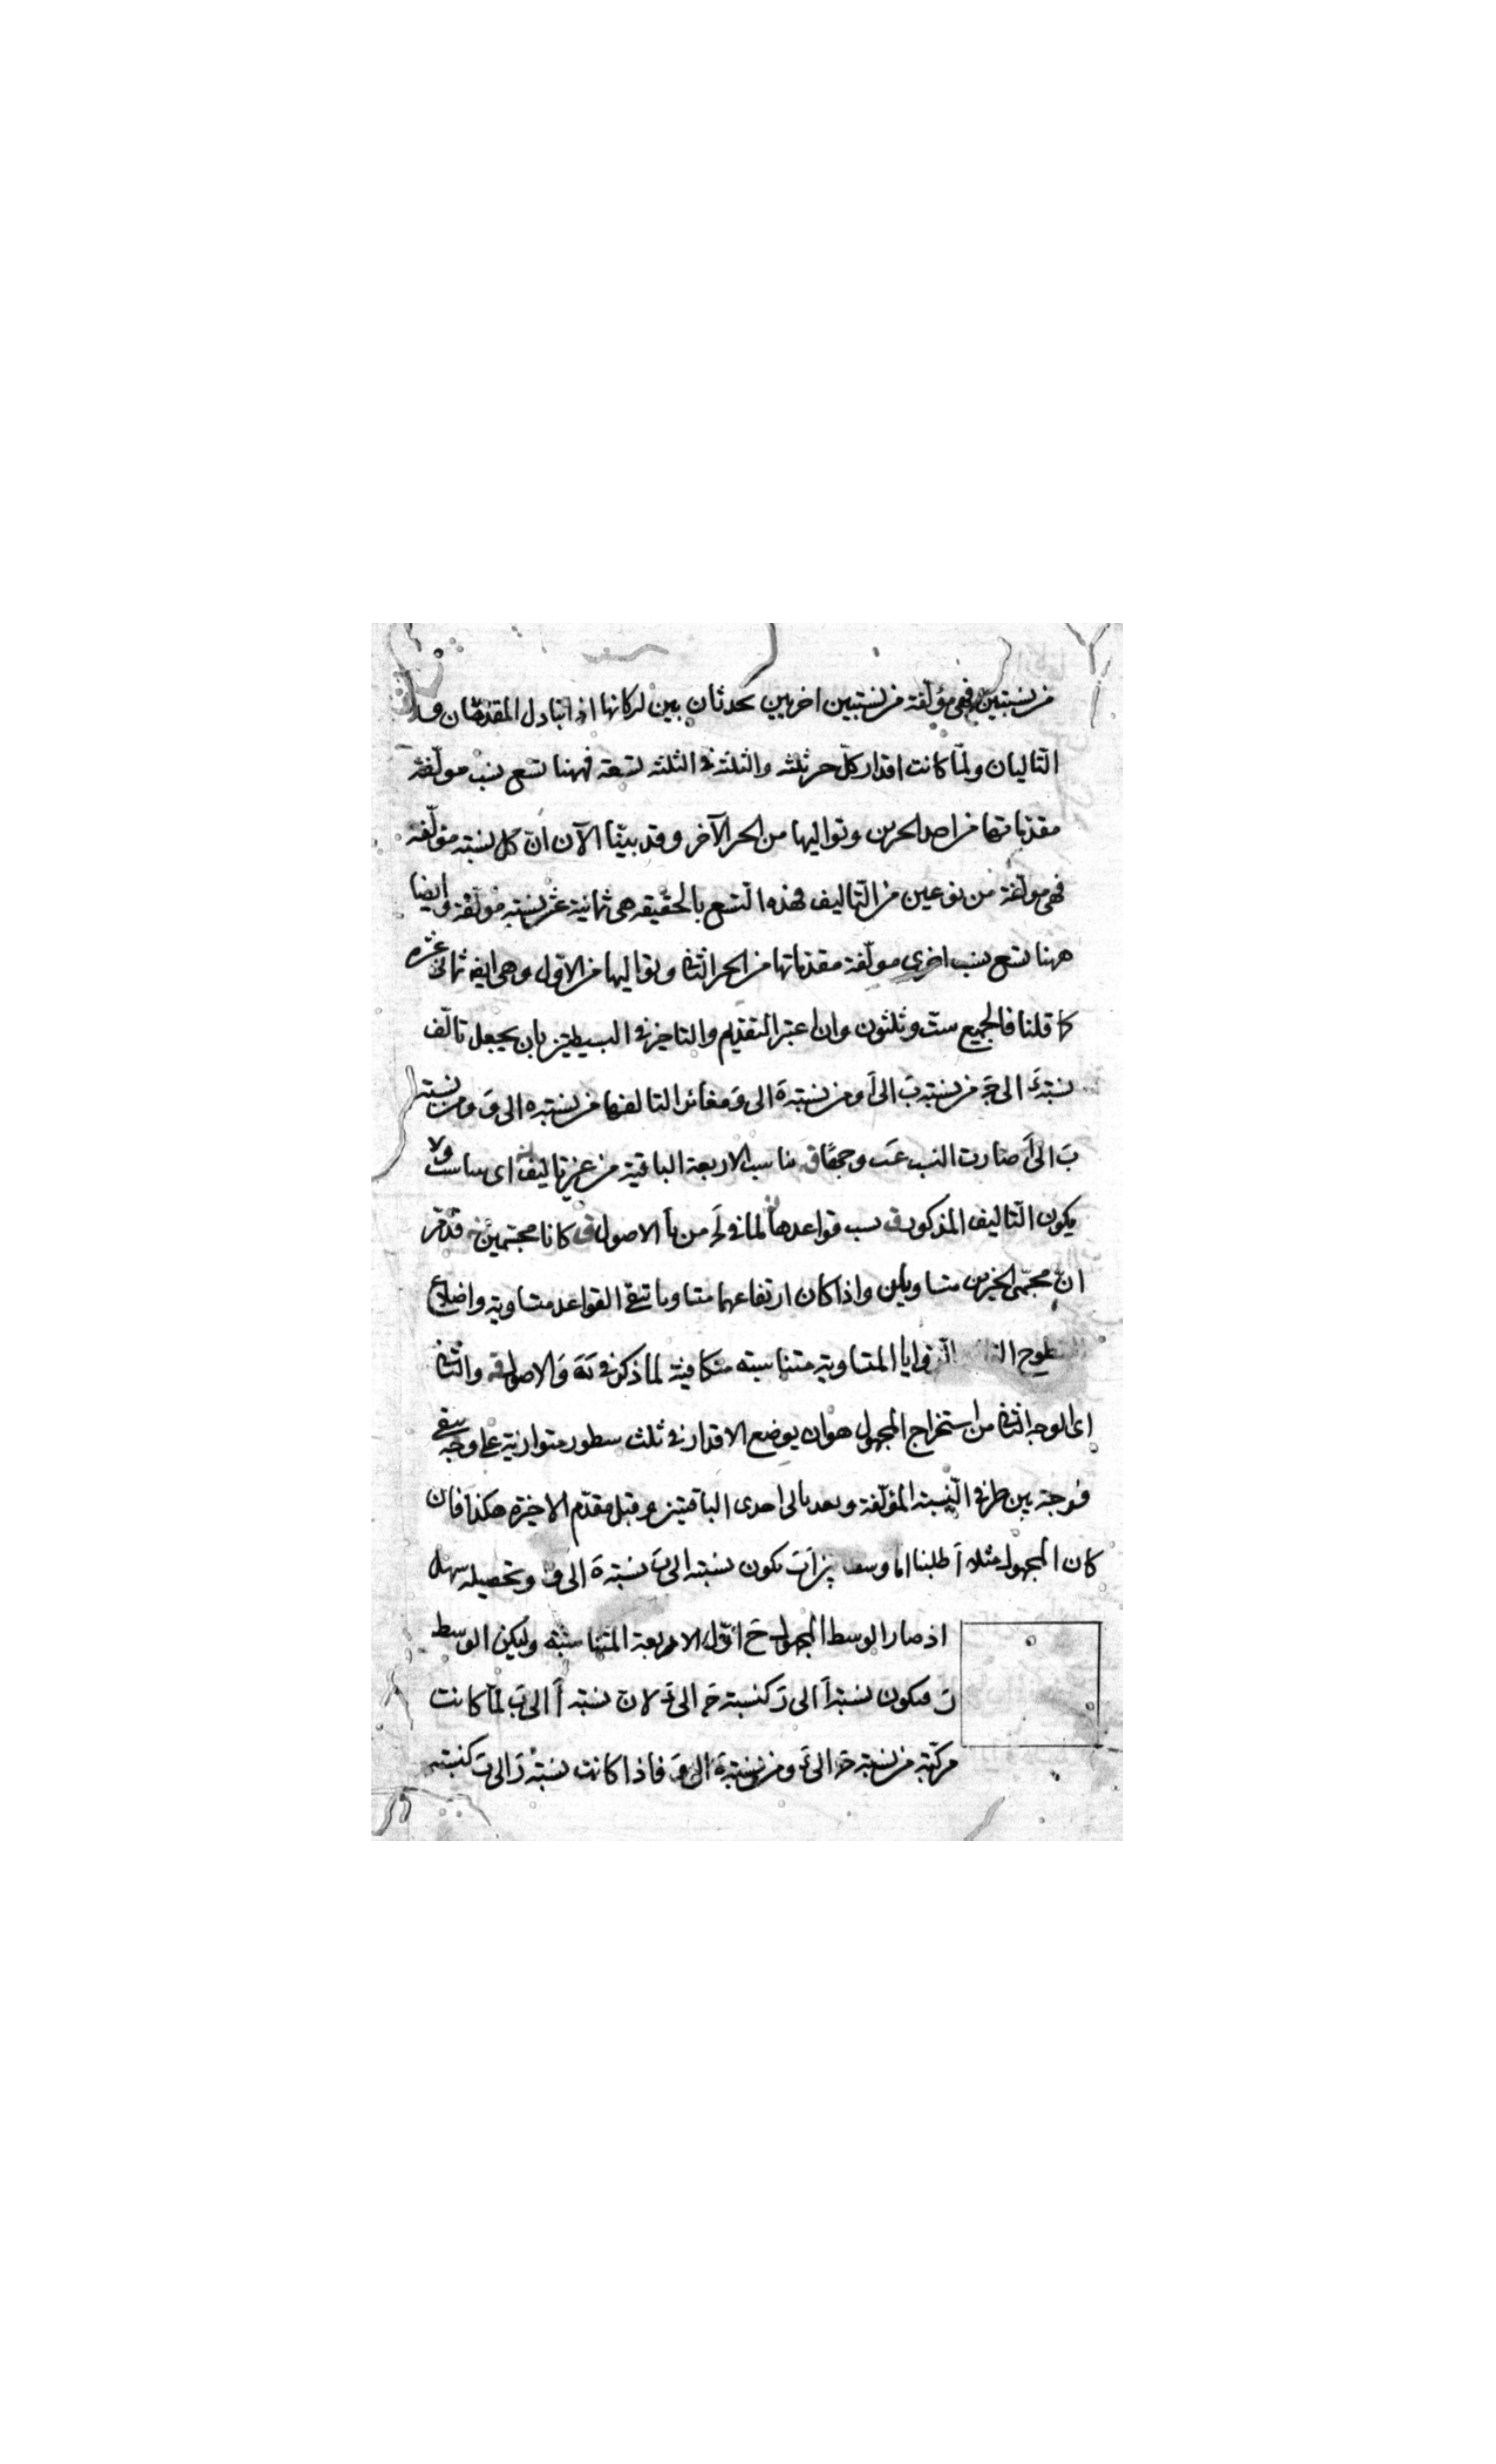 من نسبتين فهى مؤلفة من نسبتين اخريين تحدثان بين اركانها اذا تبادل المقدمان و
التاليان ولمّا كانت اقدار كلّ حيز ثلثة والثلثة فى الثلثة تسعة فههنا تسع نسب مولّفة
مقدماتها من احد الحيزين وتواليها من الحيز الآخر وقد بيّنا الآن انّ كل نسبة مؤلّفة
فهى مولّفة من نوعين من التّاليف فهذه التسع بالحقيقة هى ثمانية عشر نسبة مؤلّفة وايضا
ههنا تسع نسب اخرى مولّفة مقدماتها من الحيز الثانى وتواليها من الاوّل وهى ايضا ثمانى عشرة
كما قلنا فالجميع ستّ وثلثون وان اعتبر التقديم والتاخير فى البسيطتين بان يجعل تالّف
نسبة دَ الى جَ من نسبة بَ الى اَ ومن نسبة هَ الى وَ مغائر التالفها من نسبة ه الى وَ ومن نسبة
بَ الى اَ صارت النسب عَب الاربعة الباقية من غير تاليف اى ولا
يكون التّاليف المذكور قواعدها لما فى لَد من يَا الاصول كانا مجتمعين فقد مر
انّ مجسّمى الحيزين متساويان واذا كان ارتفاعهما متساويا تبقى القواعد متساوية واضلاع
السطوح الزوايا المتساوية متناسبة متكافية لما ذكر فى والاصول والثانى
اى الوجه الثانى من استخراج المجهول هو ان يوضع الاقدار فى ثلث سطور متوازية على وجه يبقى
فرجة بين طرفى النّسبة المؤلّفة وبعد تالى احدى الباقيتين وقبل مقدّم الاخيرة هكذا فان
كان المجهول مثلا اَ طلبنا اما وسطا بين اَبَ يكون نسبته الى بَ نسبة هَ الى وَ وتحصيله سهل
اذ صار الوسط المجهول حَ اوّل الاربعة المتناسبة وليكن الوسط
زَ فيكون نسبة اَ الى زَ كنسبة جَ الى دَ لانّ نسبة اَ الى بَ لمّا كانت
مركّبة من نسبة جَ الى دَ ومن نسبة هَ الى وَ فاذا كانت نسبة زَ الى بَ كنسبة